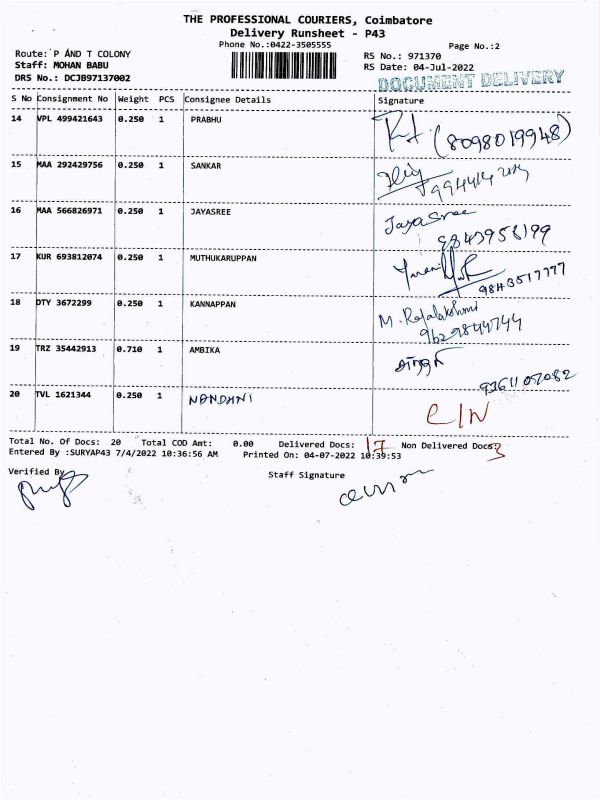 THE PROFESSIONAL COURIERS, Coimbatore
Delivery Runsheet - P43
Phone No.:0422-3505555
Page No.:2
Route: P AND T COLONY
RS No.: 971370
Staff: MOHAN BABU
RS Date: 04-Jul-2022
DRS No.: DCJB97137002
DOCUMENT DELIVERY
S No Consignment No Weight PCS Consignee Details Signature
14 VPL 499421643 0.250 1 PRABHU
(8098019948)
15 MAA 292429756 0.250 1 SANKAR
16 MAA 566826971 0.250 1 JAYASREE Jayasree
9843958199
17 KUR 693812074 0.250 1 MUTHUKARUPPAN
9843517777
18 DTY 3672299 0.250 1 KANNAPPAN M. Rajalakshmi
9629844744
19 TRZ 35442913 0.710 1 AMBIKA
9361107082
20 TVL 1621344 0.250 1 NANDHNI C/N
Total No. Of Docs: 20 Total COD Amt: 0.00 Delivered Docs: 17 Non Delivered Docs: 3
Entered By :SURYAP43 7/4/2022 10:36:56 AM Printed On: 04-07-2022 10:39:53
Verified By
Staff Signature